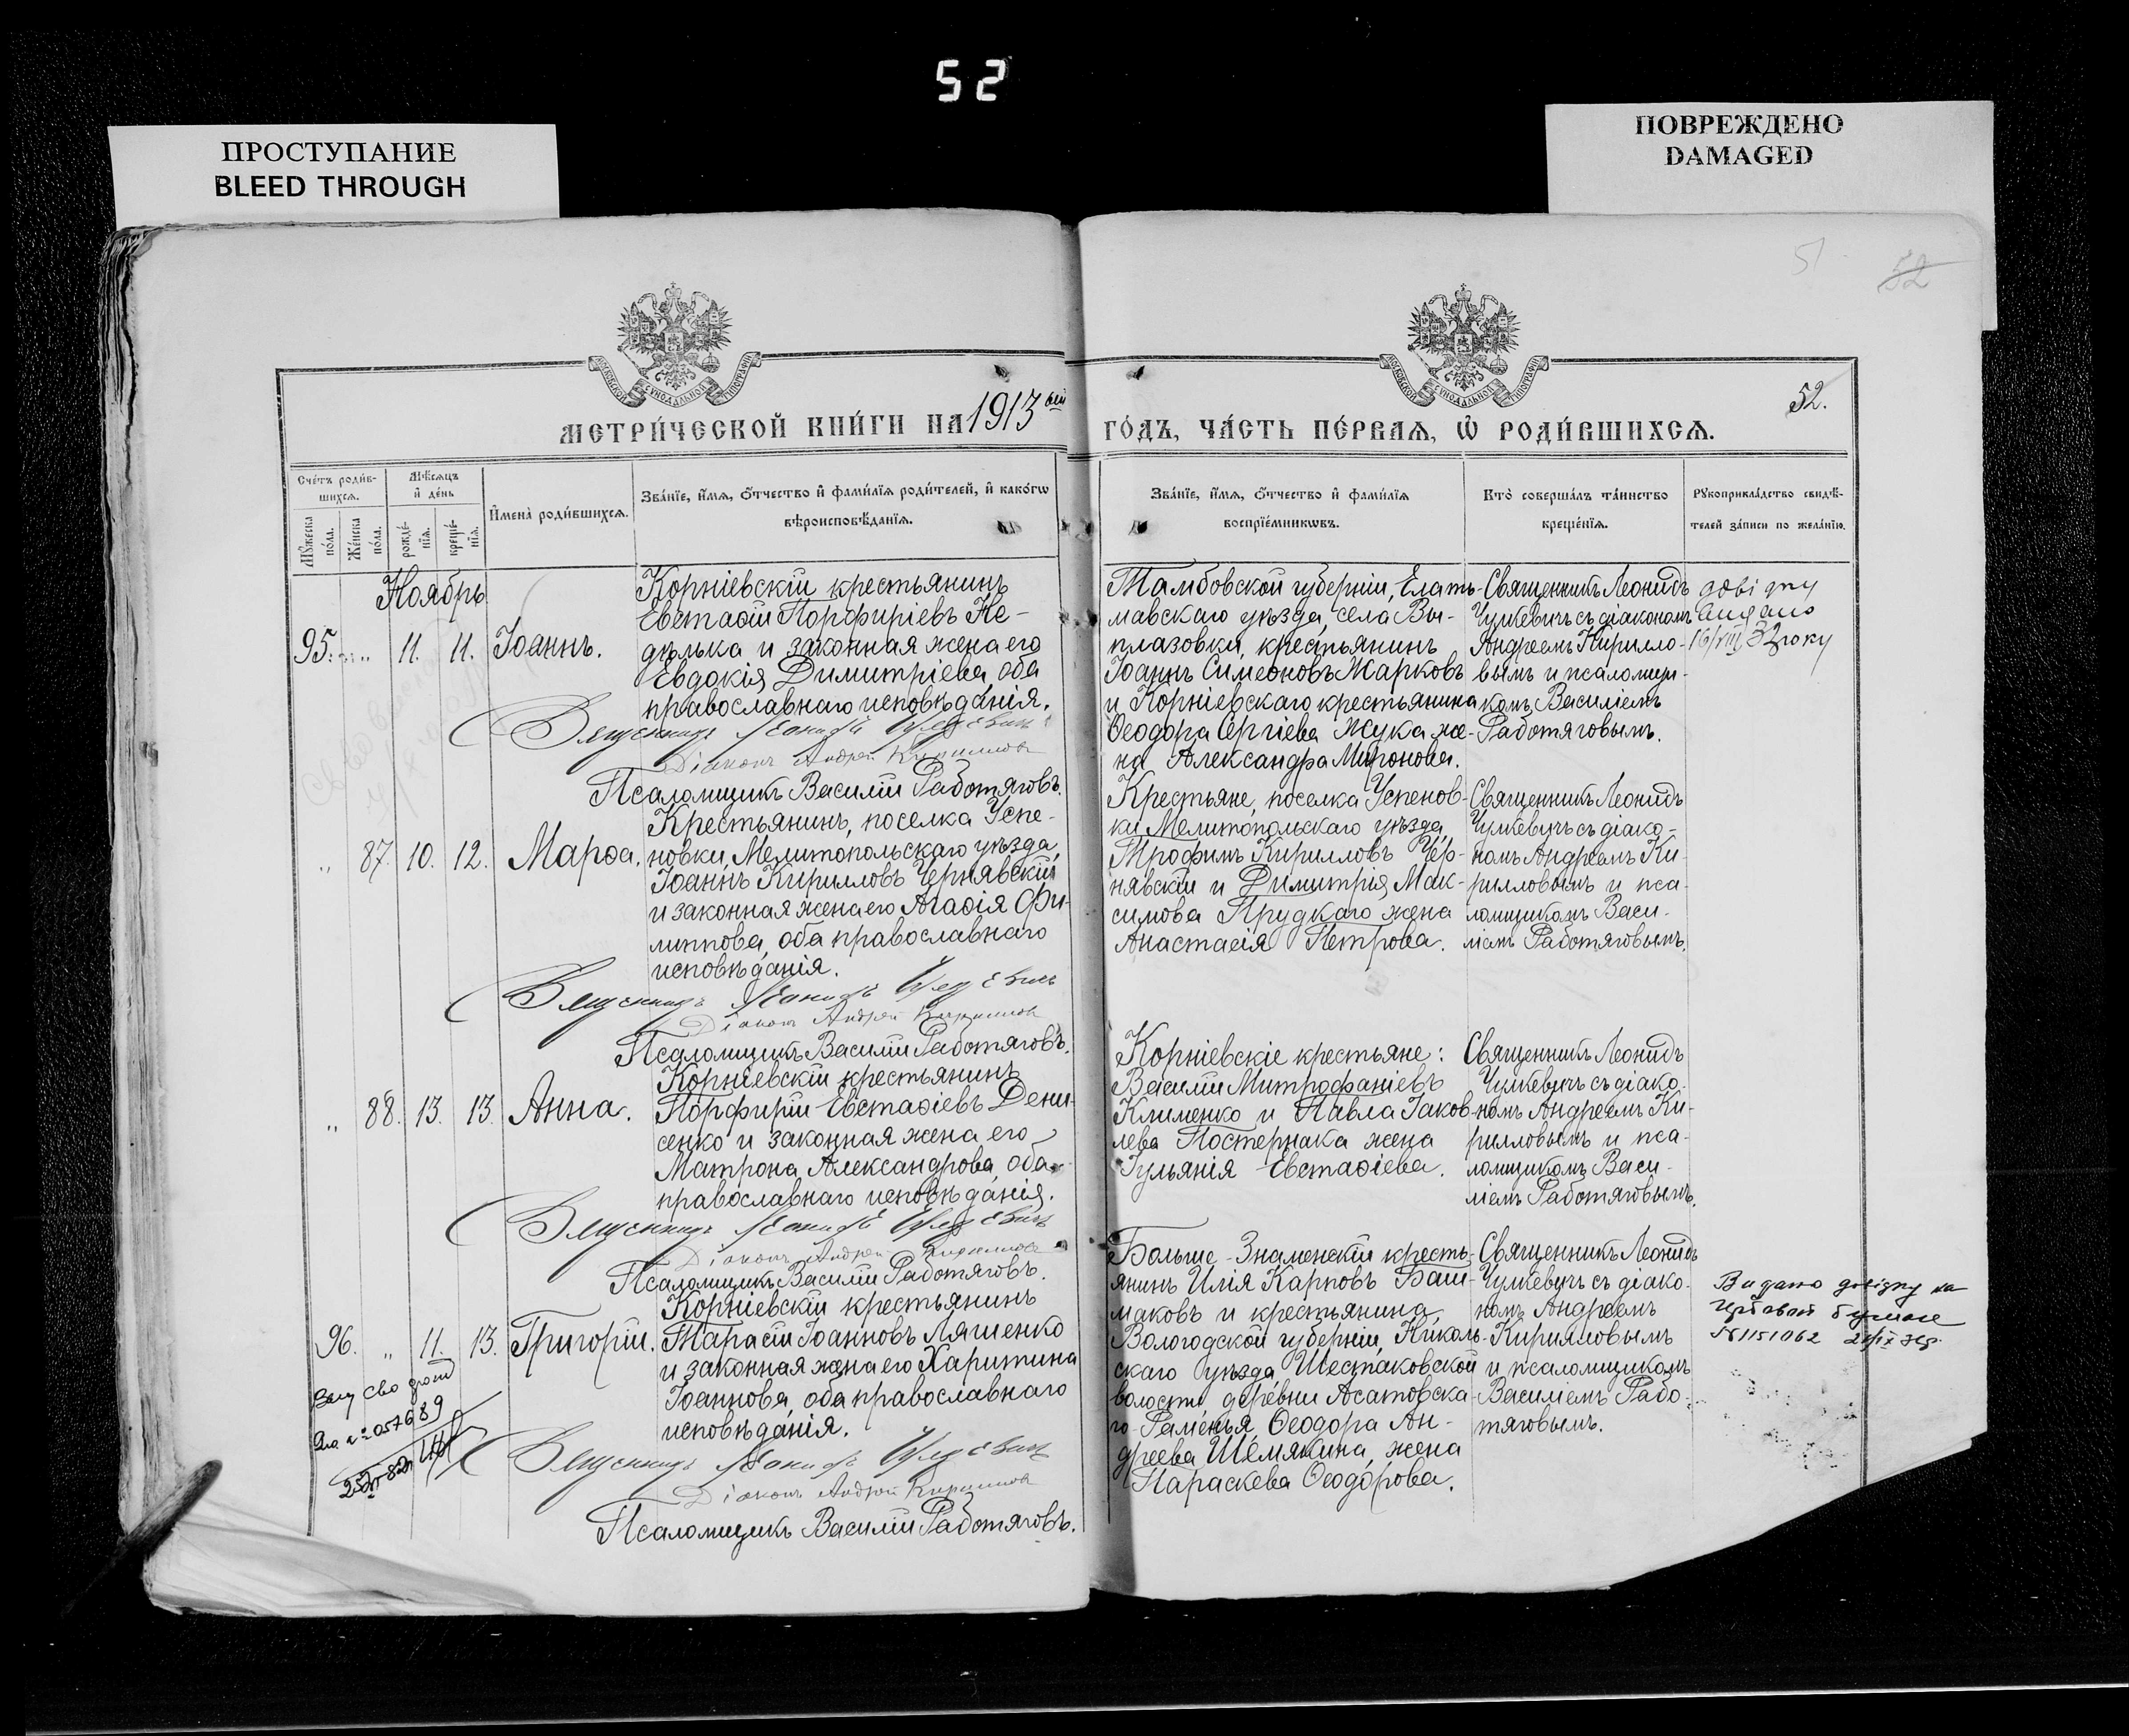 52
ПРОСТУПАНИЕ
BLEED THROUGH
ПОВРЕЖДЕНО
DAMAGED
51
52
МОСКОВСКОЙ СѴНОДАЛЬНОЙ ТИПОГРАФІИ
МОСКОВСКОЙ СѴНОДАЛЬНОЙ ТИПОГРАФІИ
МЕТРИ́ЧЕСКОЙ КНИ́ГИ НА 1913ый
ГО́ДЪ, ЧА́СТЬ ПЕ́РВАѦ, Ѡ РОДИ́ВШИХСѦ.
52.
Сче́тъ роди́в-
шихсѧ.
Мꙋ́жеска по́ла.
Же́нска по́ла.
Мѣ́сѧцъ
и҆ де́нь
рожде́нїѧ.
креще́нїѧ.
И҆мена̀ роди́вшихсѧ.
Зва́нїе, и҆́мѧ, ѻ҆́тчество и҆ фами́лїѧ роди́телей, и҆ како́гѡ
вѣроисповѣ́данїѧ.
Зва́нїе, и҆́мѧ, ѻ҆́тчество и҆ фами́лїѧ
воспрїе́мникѡвъ.
Кто̀ соверша́лъ та́инство
креще́нїѧ.
Рꙋкоприкла́дство свидѣ́-
телей за́писи по жела́нїю.
Ноябрь
95. „ 11. 11. Іоаннъ.
Корніевскій крестьянинъ
Евстаѳій Порфиріевъ Не-
дѣлька и законная жена его
Евдокія Димитріева, оба
православнаго исповѣданія.
Священникъ Леонидъ Чулкевичъ
Діаконъ Андрей Кирилловъ
Псаломщикъ Василій Работяговъ.
Тамбовской губерніи, Елать-
мавскаго уѣзда, села Вы-
плазовки, крестьянинъ
Іоаннъ Симеоновъ Жарковъ
и Корніевскаго крестьянина
Ѳеодора Сергіева Жука же-
на Александра Миронова.
Священникъ Леонидъ
Чулкевичъ съ діакономъ
Андреемъ Кирилло-
вымъ и псаломщи-
комъ Василіемъ
Работяговымъ.
довідку
видано
16/VIII 32 року
„ 87. 10. 12. Марѳа.
Крестьянинъ, поселка Успе-
новки, Мелитопольскаго уѣзда,
Іоаннъ Кирилловъ Чернявскій
и законная жена его Агаѳія Фи-
липпова, оба православнаго
исповѣданія.
Священникъ Леонидъ Чулкевичъ
Діаконъ Андрей Кирилловъ
Псаломщикъ Василій Работяговъ.
Крестьяне, поселка Успенов-
ки, Мелитопольскаго уѣзда,
Трофимъ Кирилловъ Чер-
нявскій и Димитрія Мак-
симова Прудкаго жена
Анастасія Петрова.
Священникъ Леонидъ
Чулкевичъ съ діако-
номъ Андреемъ Ки-
рилловымъ и пса-
ломщикомъ Васи-
ліемъ Работяговымъ.
„ 88. 13. 13. Анна.
Корніевскій крестьянинъ
Порфирій Евстаѳіевъ Дени-
сенко и законная жена его
Матрона Александрова, оба
православнаго исповѣданія.
Священникъ Леонидъ Чулкевичъ
Діаконъ Андрей Кирилловъ
Псаломщикъ Василій Работяговъ.
Корніевскіе крестьяне:
Василій Митрофаніевъ
Клименко и Павла Іаков-
лева Постернака жена
Іуліанія Евстаѳіева.
Священникъ Леонидъ
Чулкевичъ съ діако-
номъ Андреемъ Ки-
рилловымъ и пса-
ломщикомъ Васи-
ліемъ Работяговымъ.
96. „ 11. 13. Григорій.
Корніевскій крестьянинъ
Тарасій Іоанновъ Ляшенко
и законная жена его Харитина
Іоаннова, оба православнаго
исповѣданія.
Священникъ Леонидъ Чулкевичъ
Діаконъ Андрей Кирилловъ
Псаломщикъ Василій Работяговъ.
Больше-Знаменскій кресть-
янинъ Илія Карповъ Баш-
маковъ и крестьянина
Вологодской губерніи, Николь-
скаго уѣзда, Шестаковской
волости, деревни Асатовска-
го-Раменья, Ѳеодора Ан-
дреева Шемякина, жена
Параскева Ѳеодорова.
Священникъ Леонидъ
Чулкевичъ съ діако-
номъ Андреемъ
Кирилловымъ
и псаломщикомъ
Василіемъ Рабо-
тяговымъ.
Видано довідку на
гербовой бумаге
№1151062